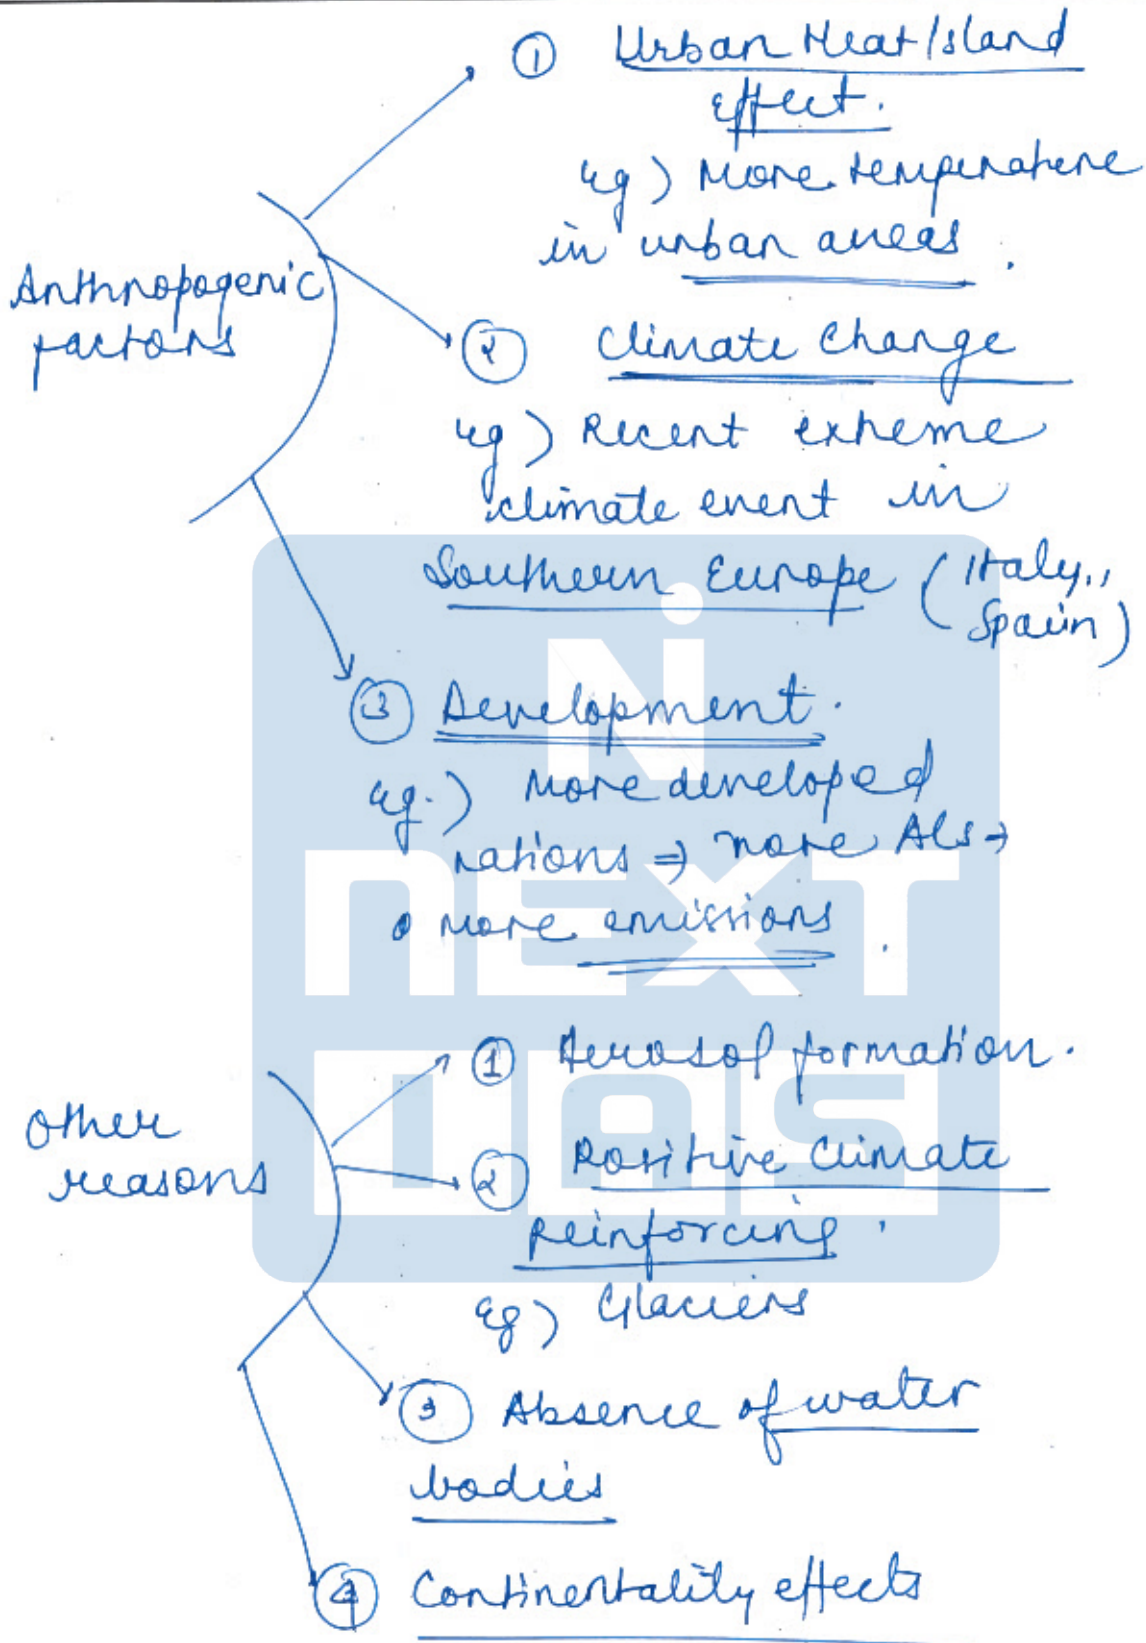 ① Urban Heat Island
Effect.
eg) More temperature
in urban areas.
Anthropogenic
factors
② Climate Change
eg) Recent extreme
climate event in
Southern Europe (Italy,,
Spain)
③ Development.
eg.) More developed
nations ⇒ more ACs →
more emissions.
Other
reasons
① Aerosol formation.
② Positive Climate
Reinforcing.
Eg) Glaciers
③ Absence of water
bodies
④ Continentality effects
NEXT
IAS